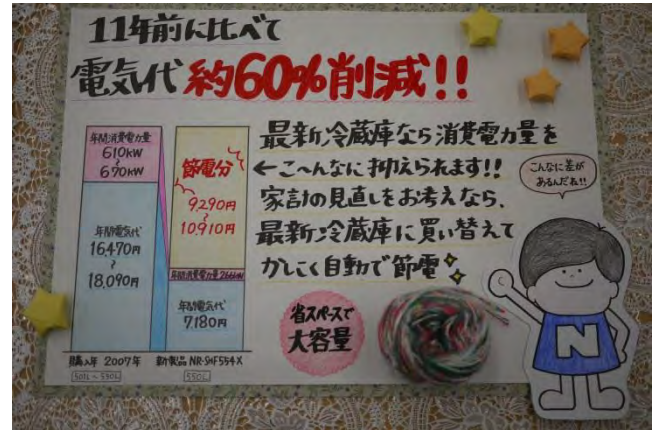 11年前に比べて
電気代 約60%削減!!
年間消費電力量
610kW
~
670kW
年間電気代
16,470円
~
18,090円
購入年 2007年
節電分
9,290円
~
10,910円
年間消費電力量266kW
年間電気代
7,180円
新製品 NR-SHF554X
550L
最新冷蔵庫なら消費電力量を
←こ〜んなに抑えられます!!
家計の見直しをお考えなら、
最新冷蔵庫に買い替えて
かしこく自動で節電
省スペースで
大容量
こんなに差が
あるんだね!!
N